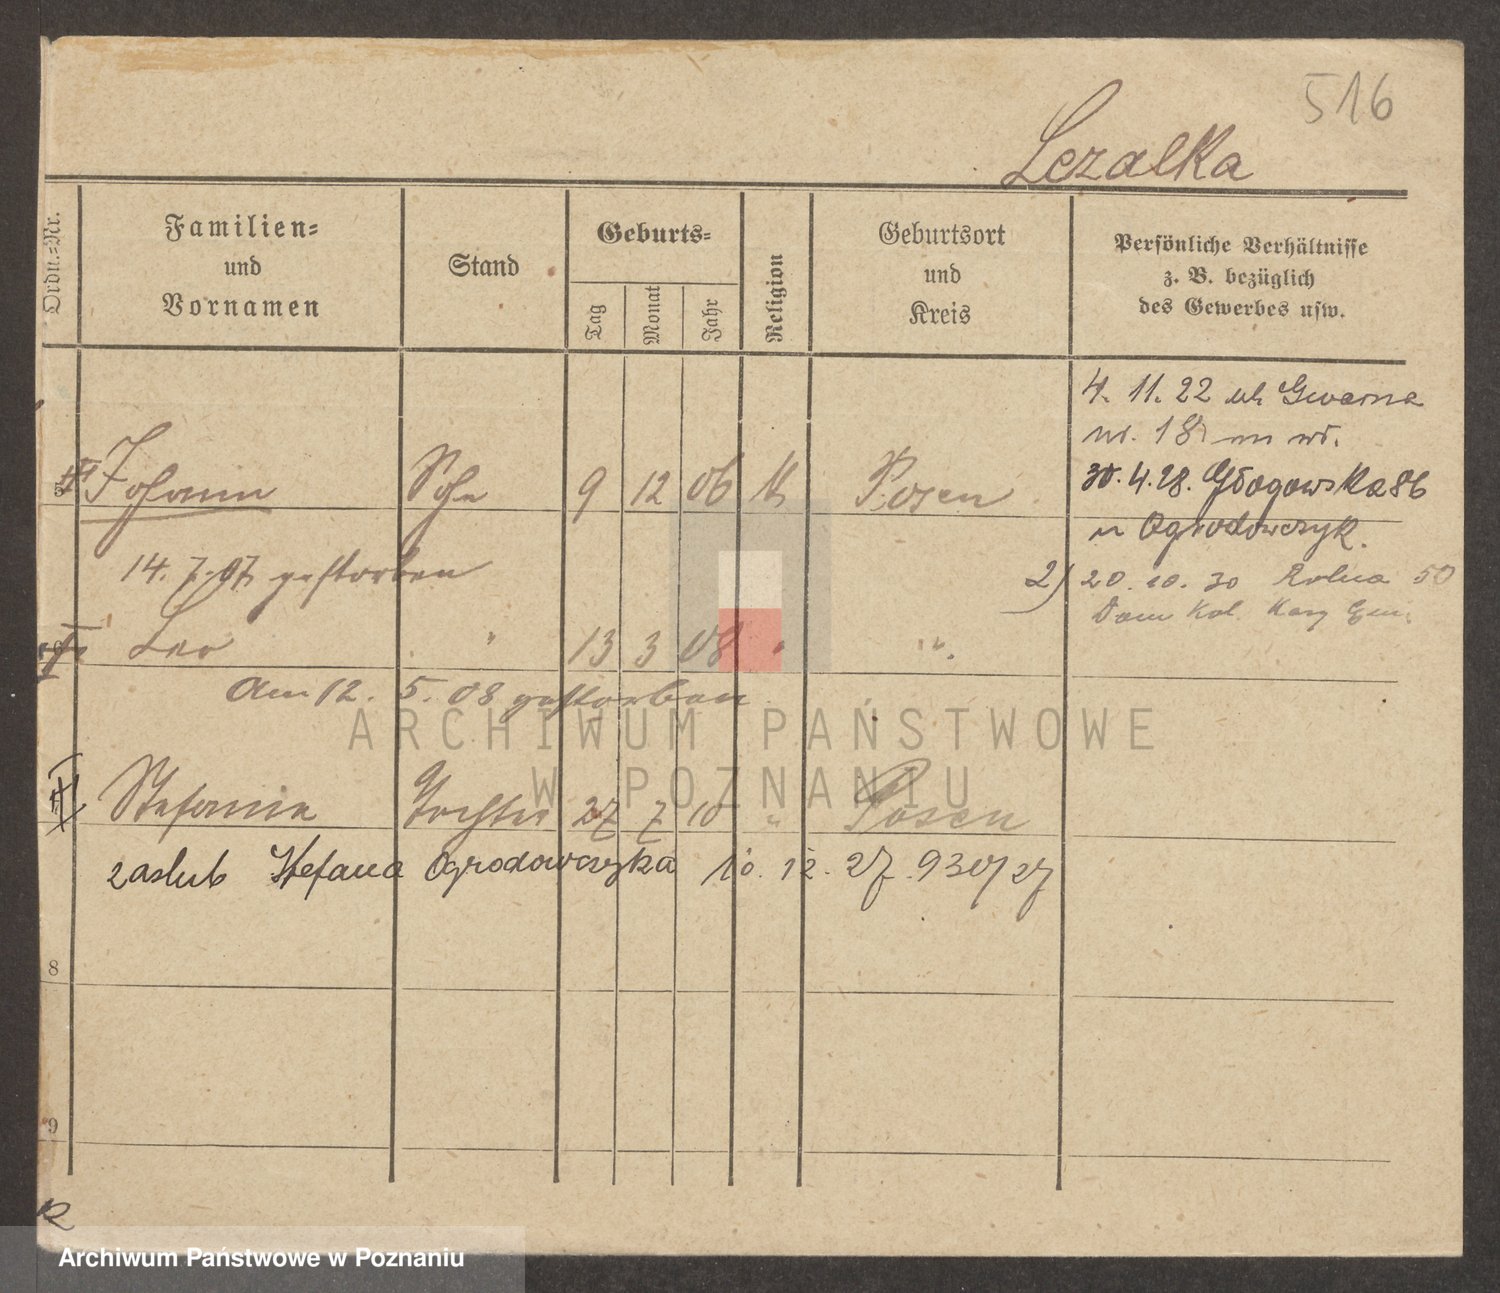 516
Lezalka
Ordn.-Nr.
Familien-
und
Vornamen
Stand
Geburts-
Tag
Monat
Jahr
Religion
Geburtsort
und
Kreis
Persönliche Verhältnisse
z. B. bezüglich
des Gewerbes usw.
4. 11. 22 ul. Gwarna
nr. 18
Johann Sohn 9 12 06 k Posen
30. 4. 28. Głogowska 86
u Ogrodowczyk.
14. 7. 07 gestorben
2) 20. 10. 30 Rolna 50
Leo " 13 3 08 " "
Am 12. 5. 08 gestorben
ARCHIWUM PAŃSTWOWE
W POZNANIU
Stefanie Tochter 27 7 10 " Posen
zaslub Stefana Ogrodowczyka 10. 12. 27. 930/27
8
9
Archiwum Państwowe w Poznaniu